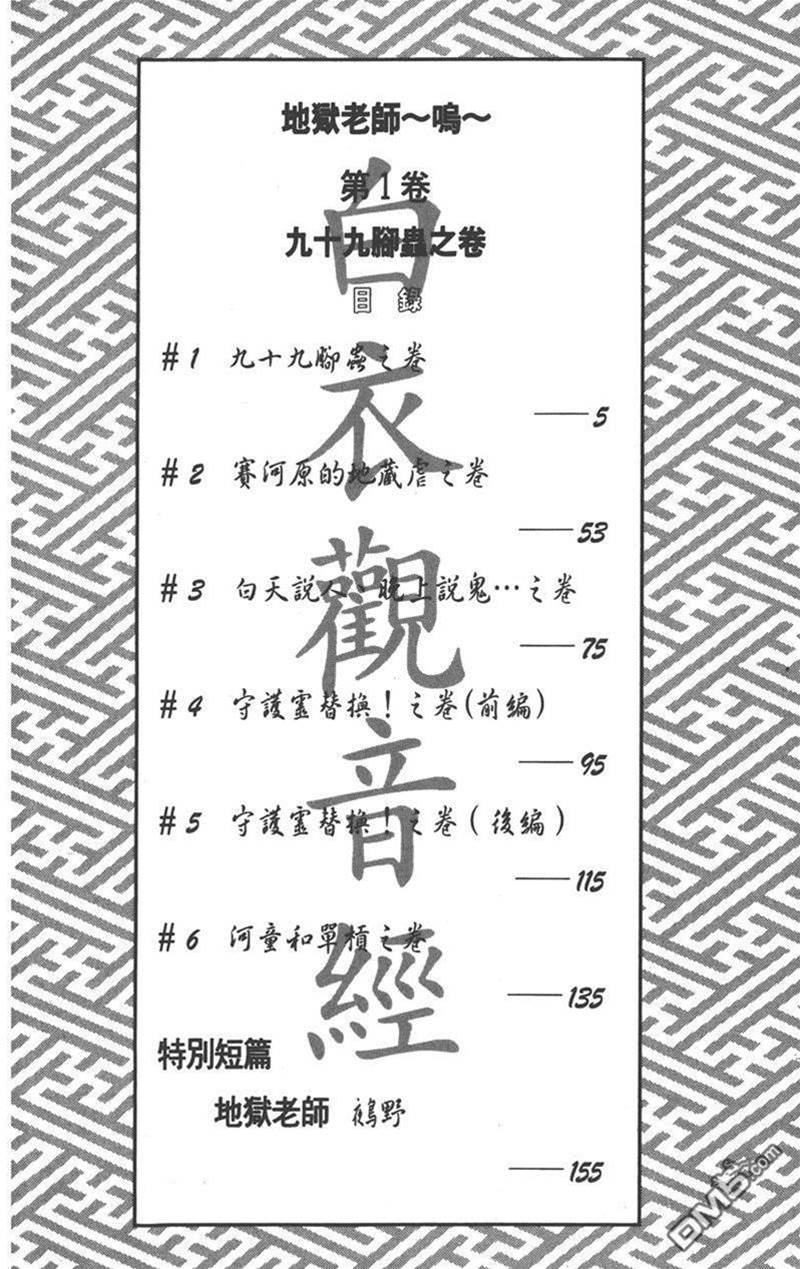 地獄老師～鳴～
第1卷
九十九腳蟲之卷
目錄
#1 九十九腳蟲之卷
5
#2 賽河原的地藏虐之卷
53
#3 白天說人、晚上說鬼…之卷
75
#4 守護靈替換！之卷(前編)
95
#5 守護靈替換！之卷(後編)
115
#6 河童和單槓之卷
135
特別短篇
地獄老師 鵺野
155
白衣觀音經
DM5.com